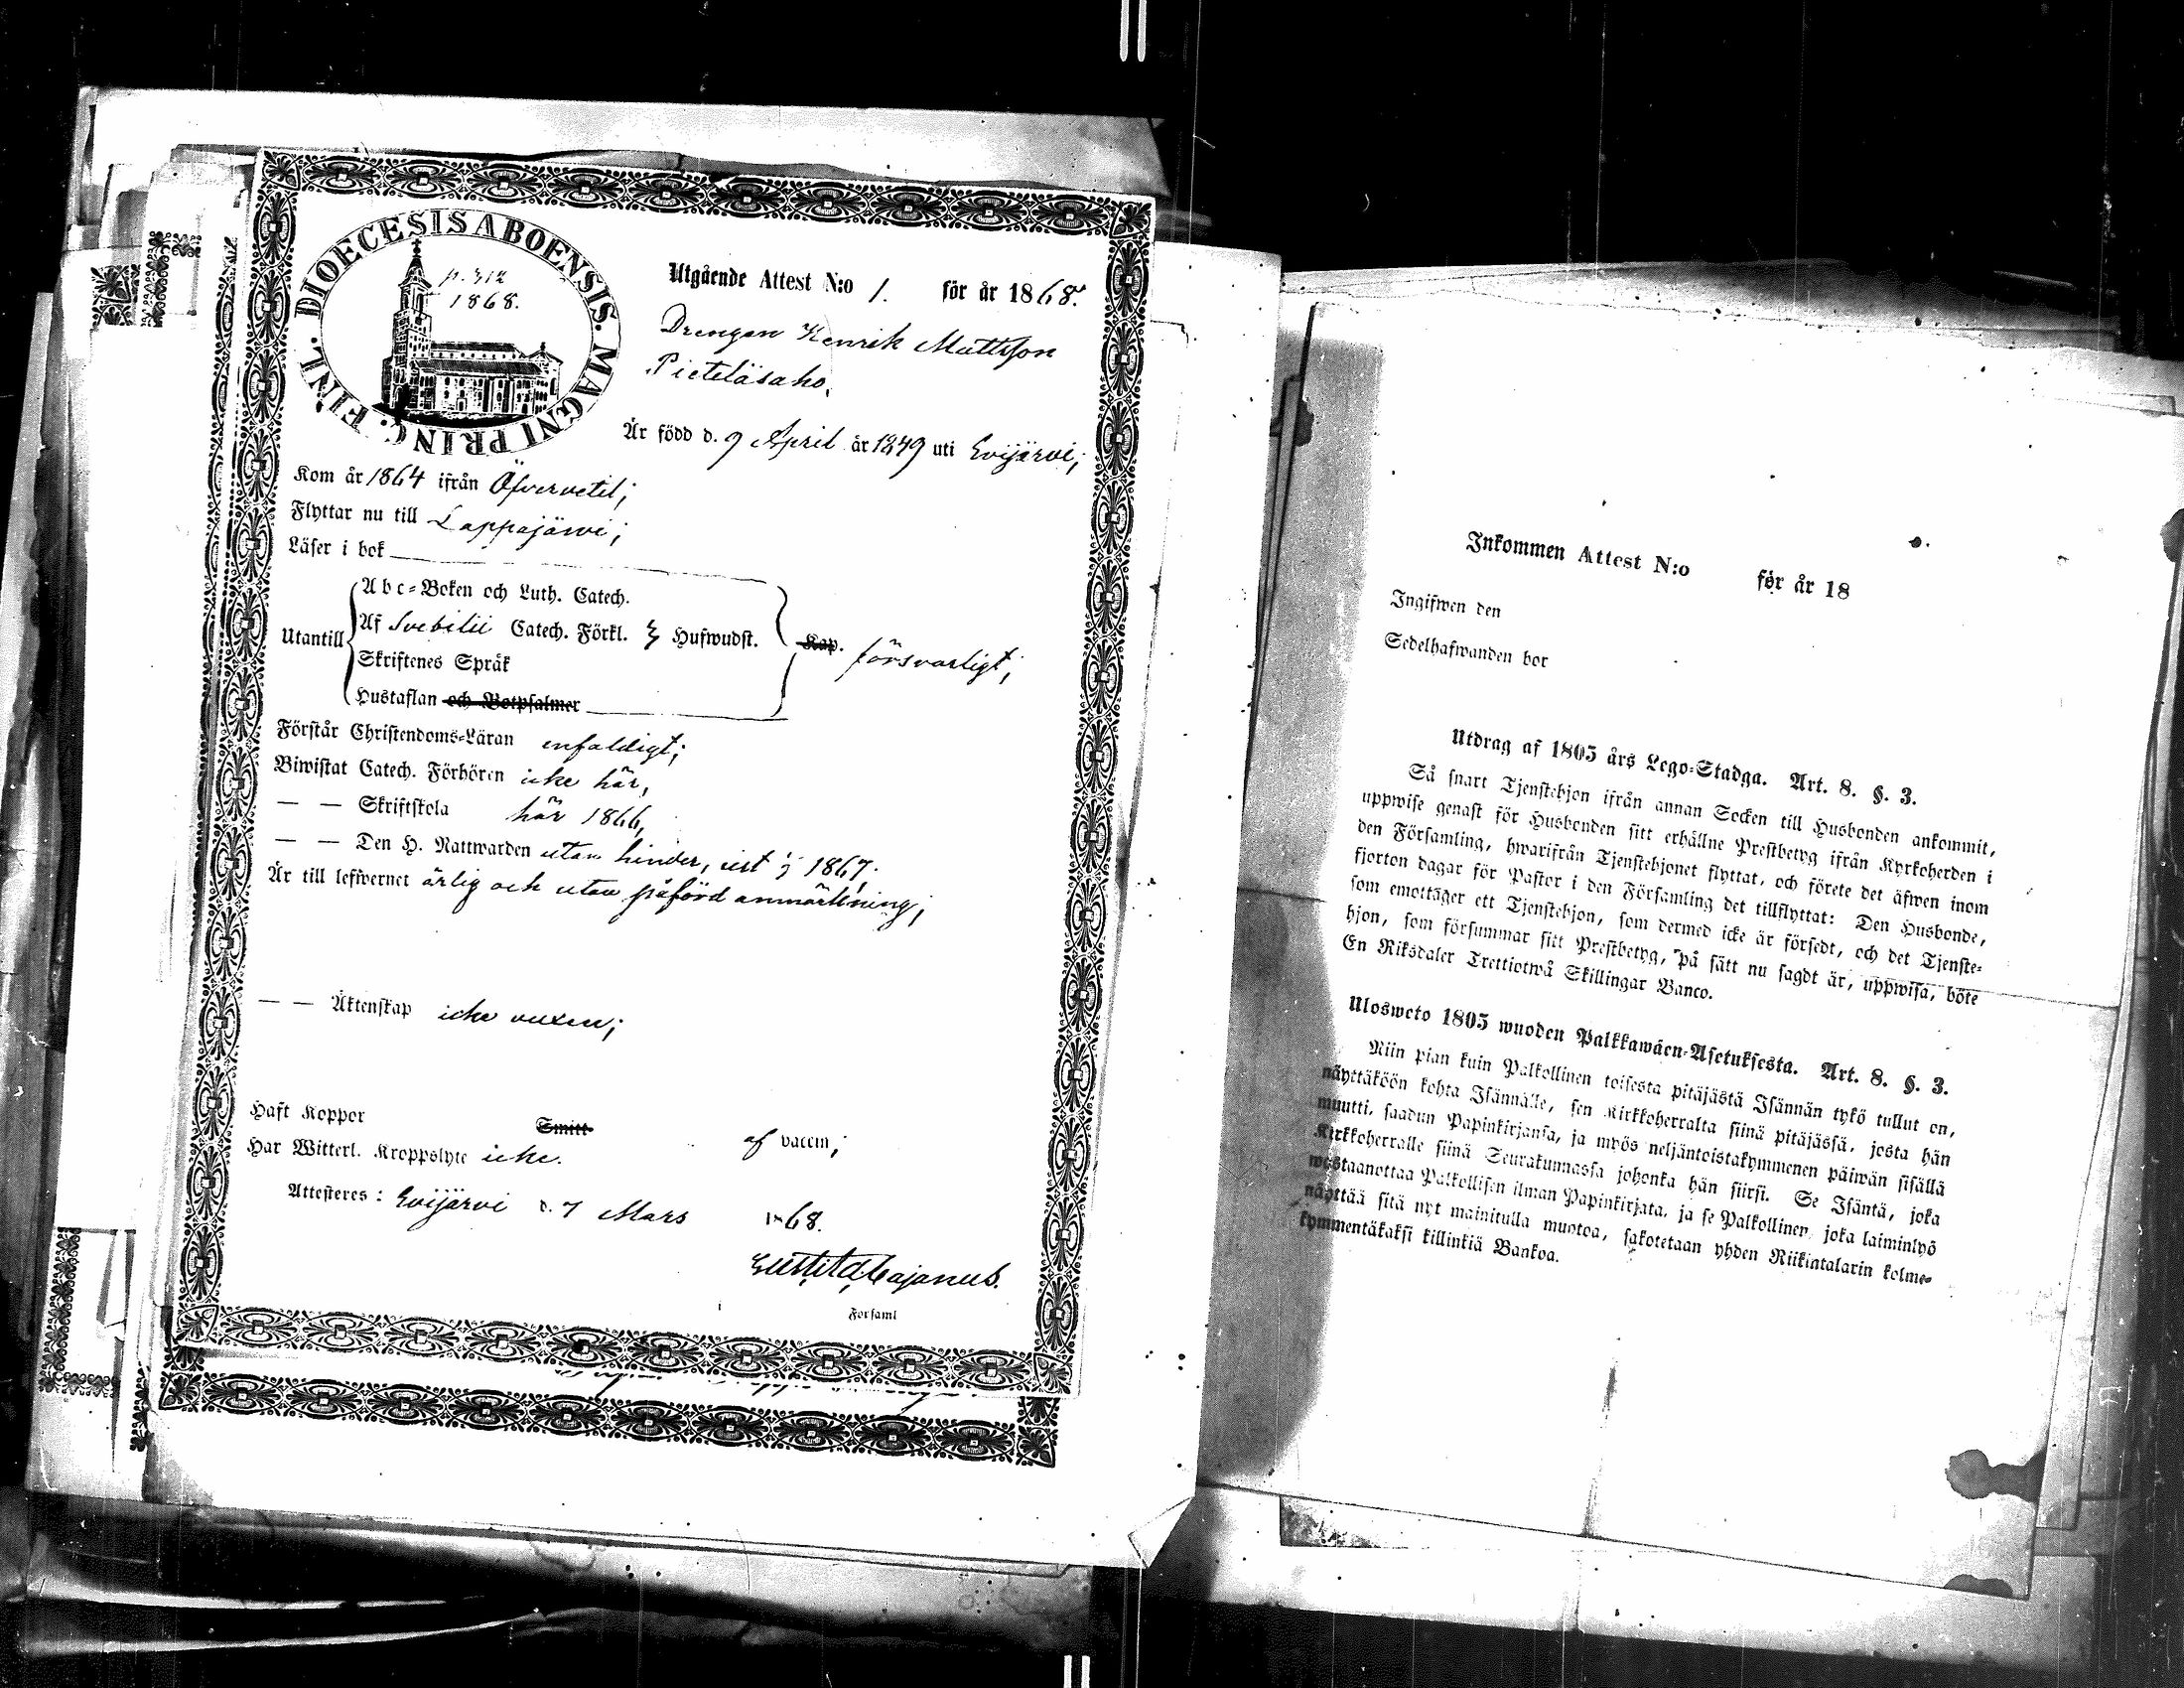 DIOECESIS ABOENSIS. MAGNI PRINC. FINL.
p. 312
1868.
Utgående Attest N:o 1. för år 1868.
Drengen Henrik Mattsson
Pieteläsaho,
Är född d. 9 April år 1849 uti Evijärvi;
Kom år 1864 ifrån Öfvervetil;
Flyttar nu till Lappajärvi;
Läser i bok
Utantill
Abc-Boken och Luth. Catech.
Af Svebilii Catech. Förkl. 3 Hufwudst.
Skriftenes Språk
Hustaflan och Botpsalmer
Kap. försvarligt;
Förstår Christendoms-Läran enfaldigt;
Biwistat Catech. Förhören icke här,
— — Skriftskola här 1866,
— — Den H. Nattwarden utan hinder, sist 1867.
Är till lefwernet ärlig och utan påförd anmärkning;
— — Äktenskap icke vuxen;
Haft Koppor Smitt af vaccin;
Har Witterl. Kroppslyte icke.
Attesteres: Evijärvi d. 7 Mars 1868.
Gust. Ad. Cajanus.
Församl
Inkommen Attest N:o för år 18
Ingifwen den
Sedelhafwanden bor
Utdrag af 1805 års Lego-Stadga. Art. 8. §. 3.
Så snart Tjenstehjon ifrån annan Socken till Husbonden ankommit,
uppwise genast för Husbonden sitt erhållne Prestbetyg ifrån Kyrkoherden i
den Församling, hwarifrån Tjenstehjonet flyttat, och förete det äfwen inom
fjorton dagar för Pastor i den Församling det tillflyttat: Den Husbonde,
som emottager ett Tjenstehjon, som dermed icke är försedt, och det Tjenste-
hjon, som försummar sitt Prestbetyg, på sätt nu sagdt är, uppwisa, böte
En Riksdaler Trettiotwå Skillingar Banco.
Ulosweto 1805 wuoden Palkkawäen-Asetuksesta. Art. 8. §. 3.
Niin pian kuin Palkollinen toisesta pitäjästä Isännän tykö tullut on,
näyttäköön kohta Isännälle, sen Kirkkoherralta siinä pitäjässä, josta hän
muutti, saadun Papinkirjansa, ja myös neljäntoistakymmenen päiwän sisällä
Kirkkoherralle siinä Seurakunnassa johonka hän siirsi. Se Isäntä, joka
wastaanottaa Palkollisen ilman Papinkirjata, ja se Palkollinen joka laiminlyö
näyttää sitä nyt mainitulla muotoa, sakotetaan yhden Riikintalarin kolme-
kymmentäkaksi killinkiä Bankoa.